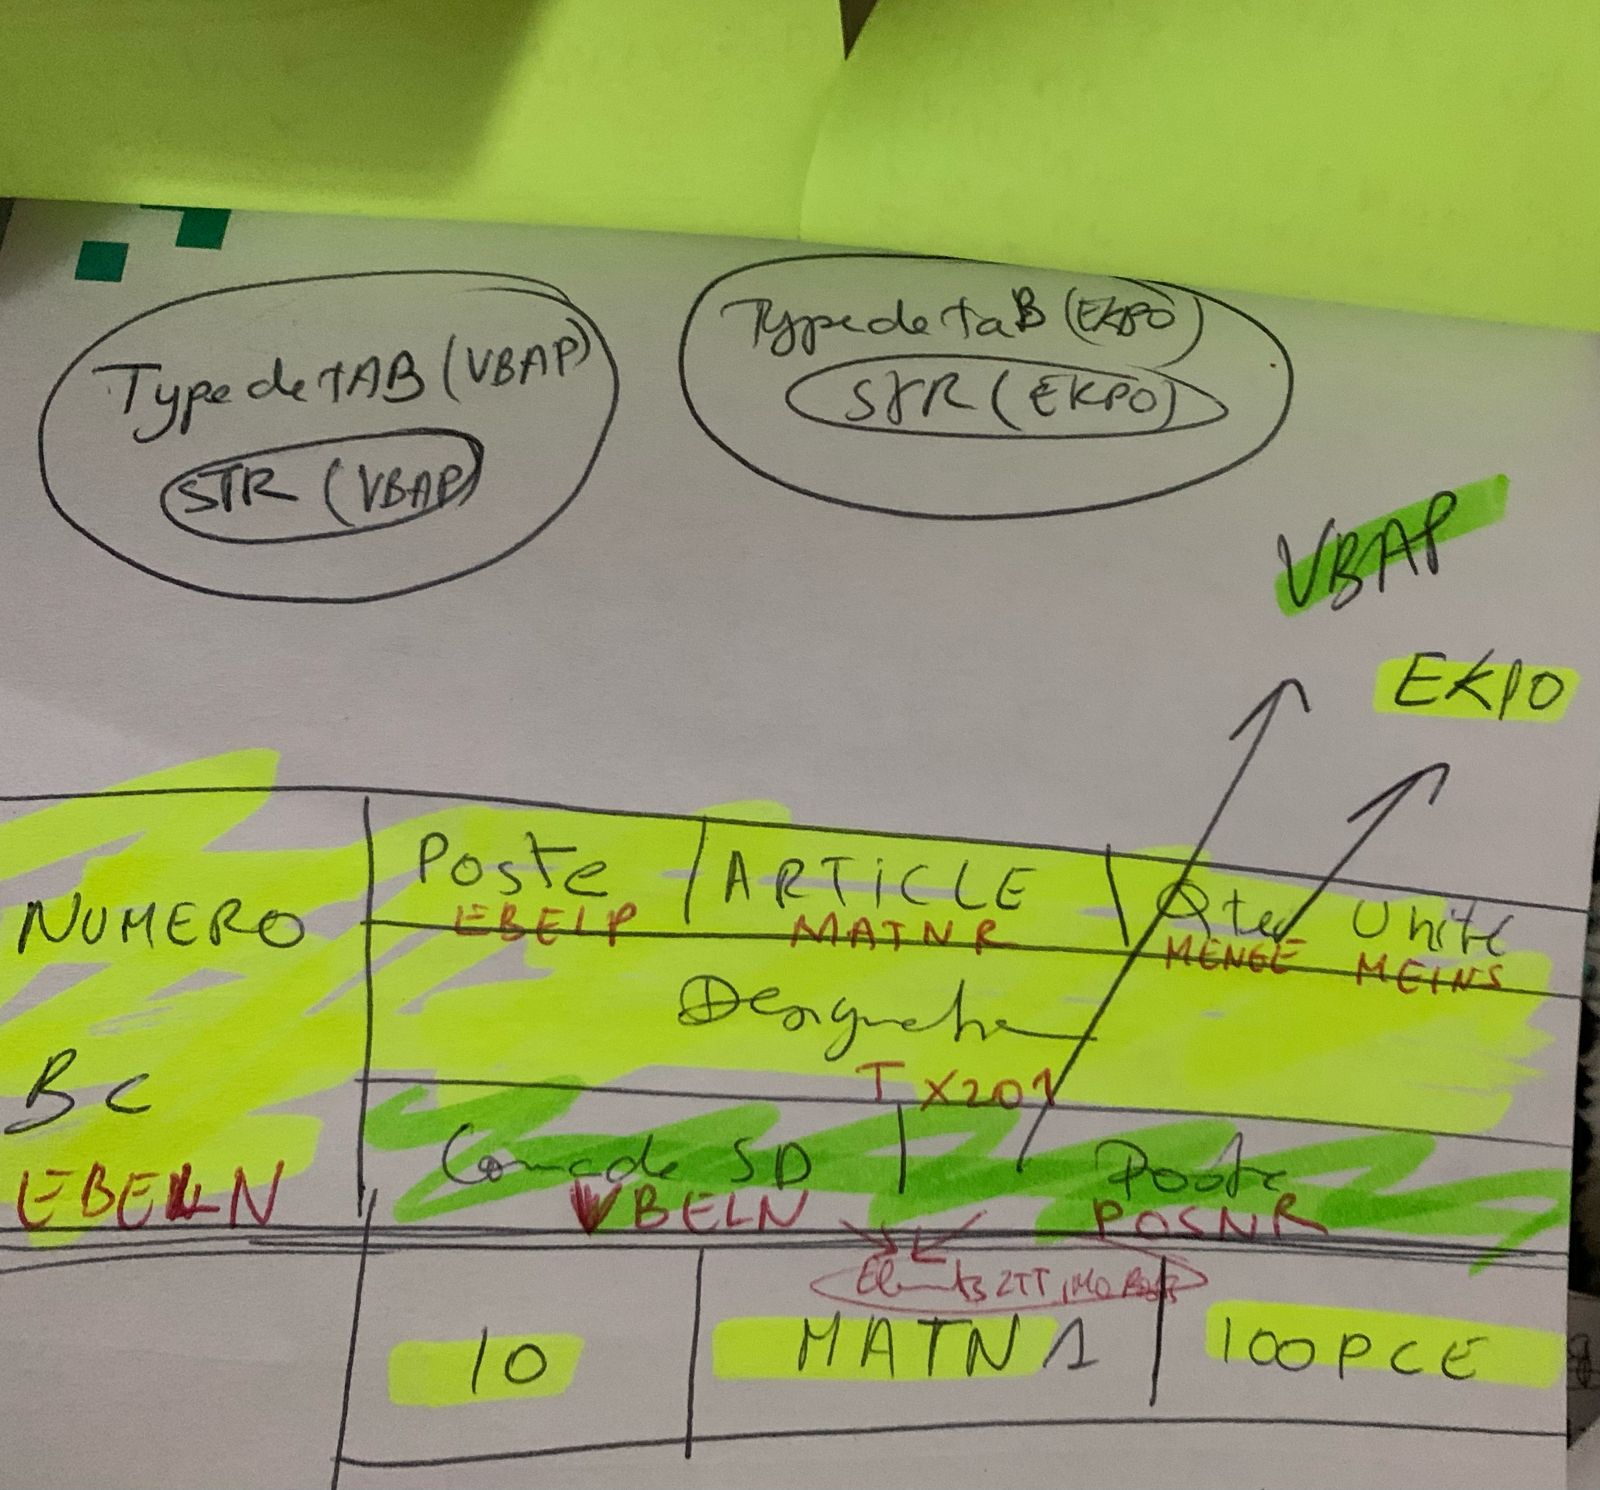 Type de tAB (VBAP)
STR (VBAP)
Type de taB (EKPO)
STR (EKPO)
VBAP
EKPO
NUMERO
BC
EBELN
Poste
EBELP
ARTiCLE
MATNR
Qtee
MENGE
Unite
MEINS
Designation
TXZ01
Comade SD
VBELN
Poste
POSNR
10
MATN1
100PCE